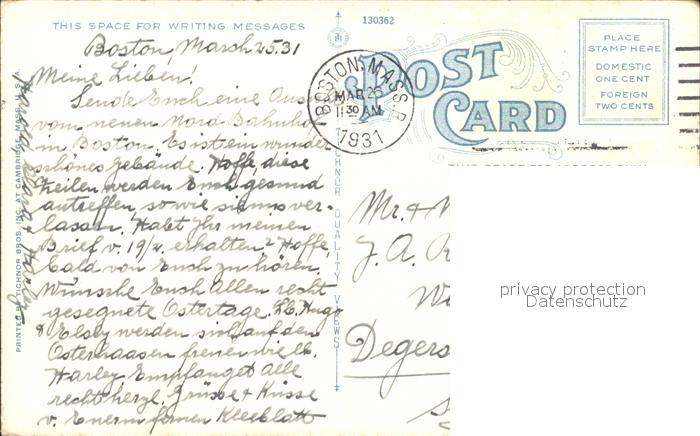 THIS SPACE FOR WRITING MESSAGES
130362
POST CARD
PLACE
STAMP HERE
DOMESTIC
ONE CENT
FOREIGN
TWO CENTS
BOSTON, MASS.
MAR 26
11 30 AM
1931
Boston, March 25. 31
Meine Lieben.
Sende Euch eine
vom neuen Nord Bahnhof
in Boston. Es ist ein wunder
schönes Gebäude. Hoffe, diese
Zeilen werden Euch gesund
antreffen, so wie sie uns ver-
lassen. Habt Ihr meinen
Brief v. 19/2. erhalten? Hoffe,
bald von Euch zu hören.
Wünsche Euch Allen recht
gesegnete Ostertage. Hugo
& Elsy werden sich auf den
Osterhaasen freuen wie
Harley. Empfanget Alle
recht herzl. Grüsse & Küsse
v. Euerm fernen Kleeblatt
PRINTED BY TICHNOR BROS. INC. AT CAMBRIDGE, MASS. U.S.A.
TICHNOR QUALITY VIEWS
Mr. &
J. A.
Degers
privacy protection
Datenschutz